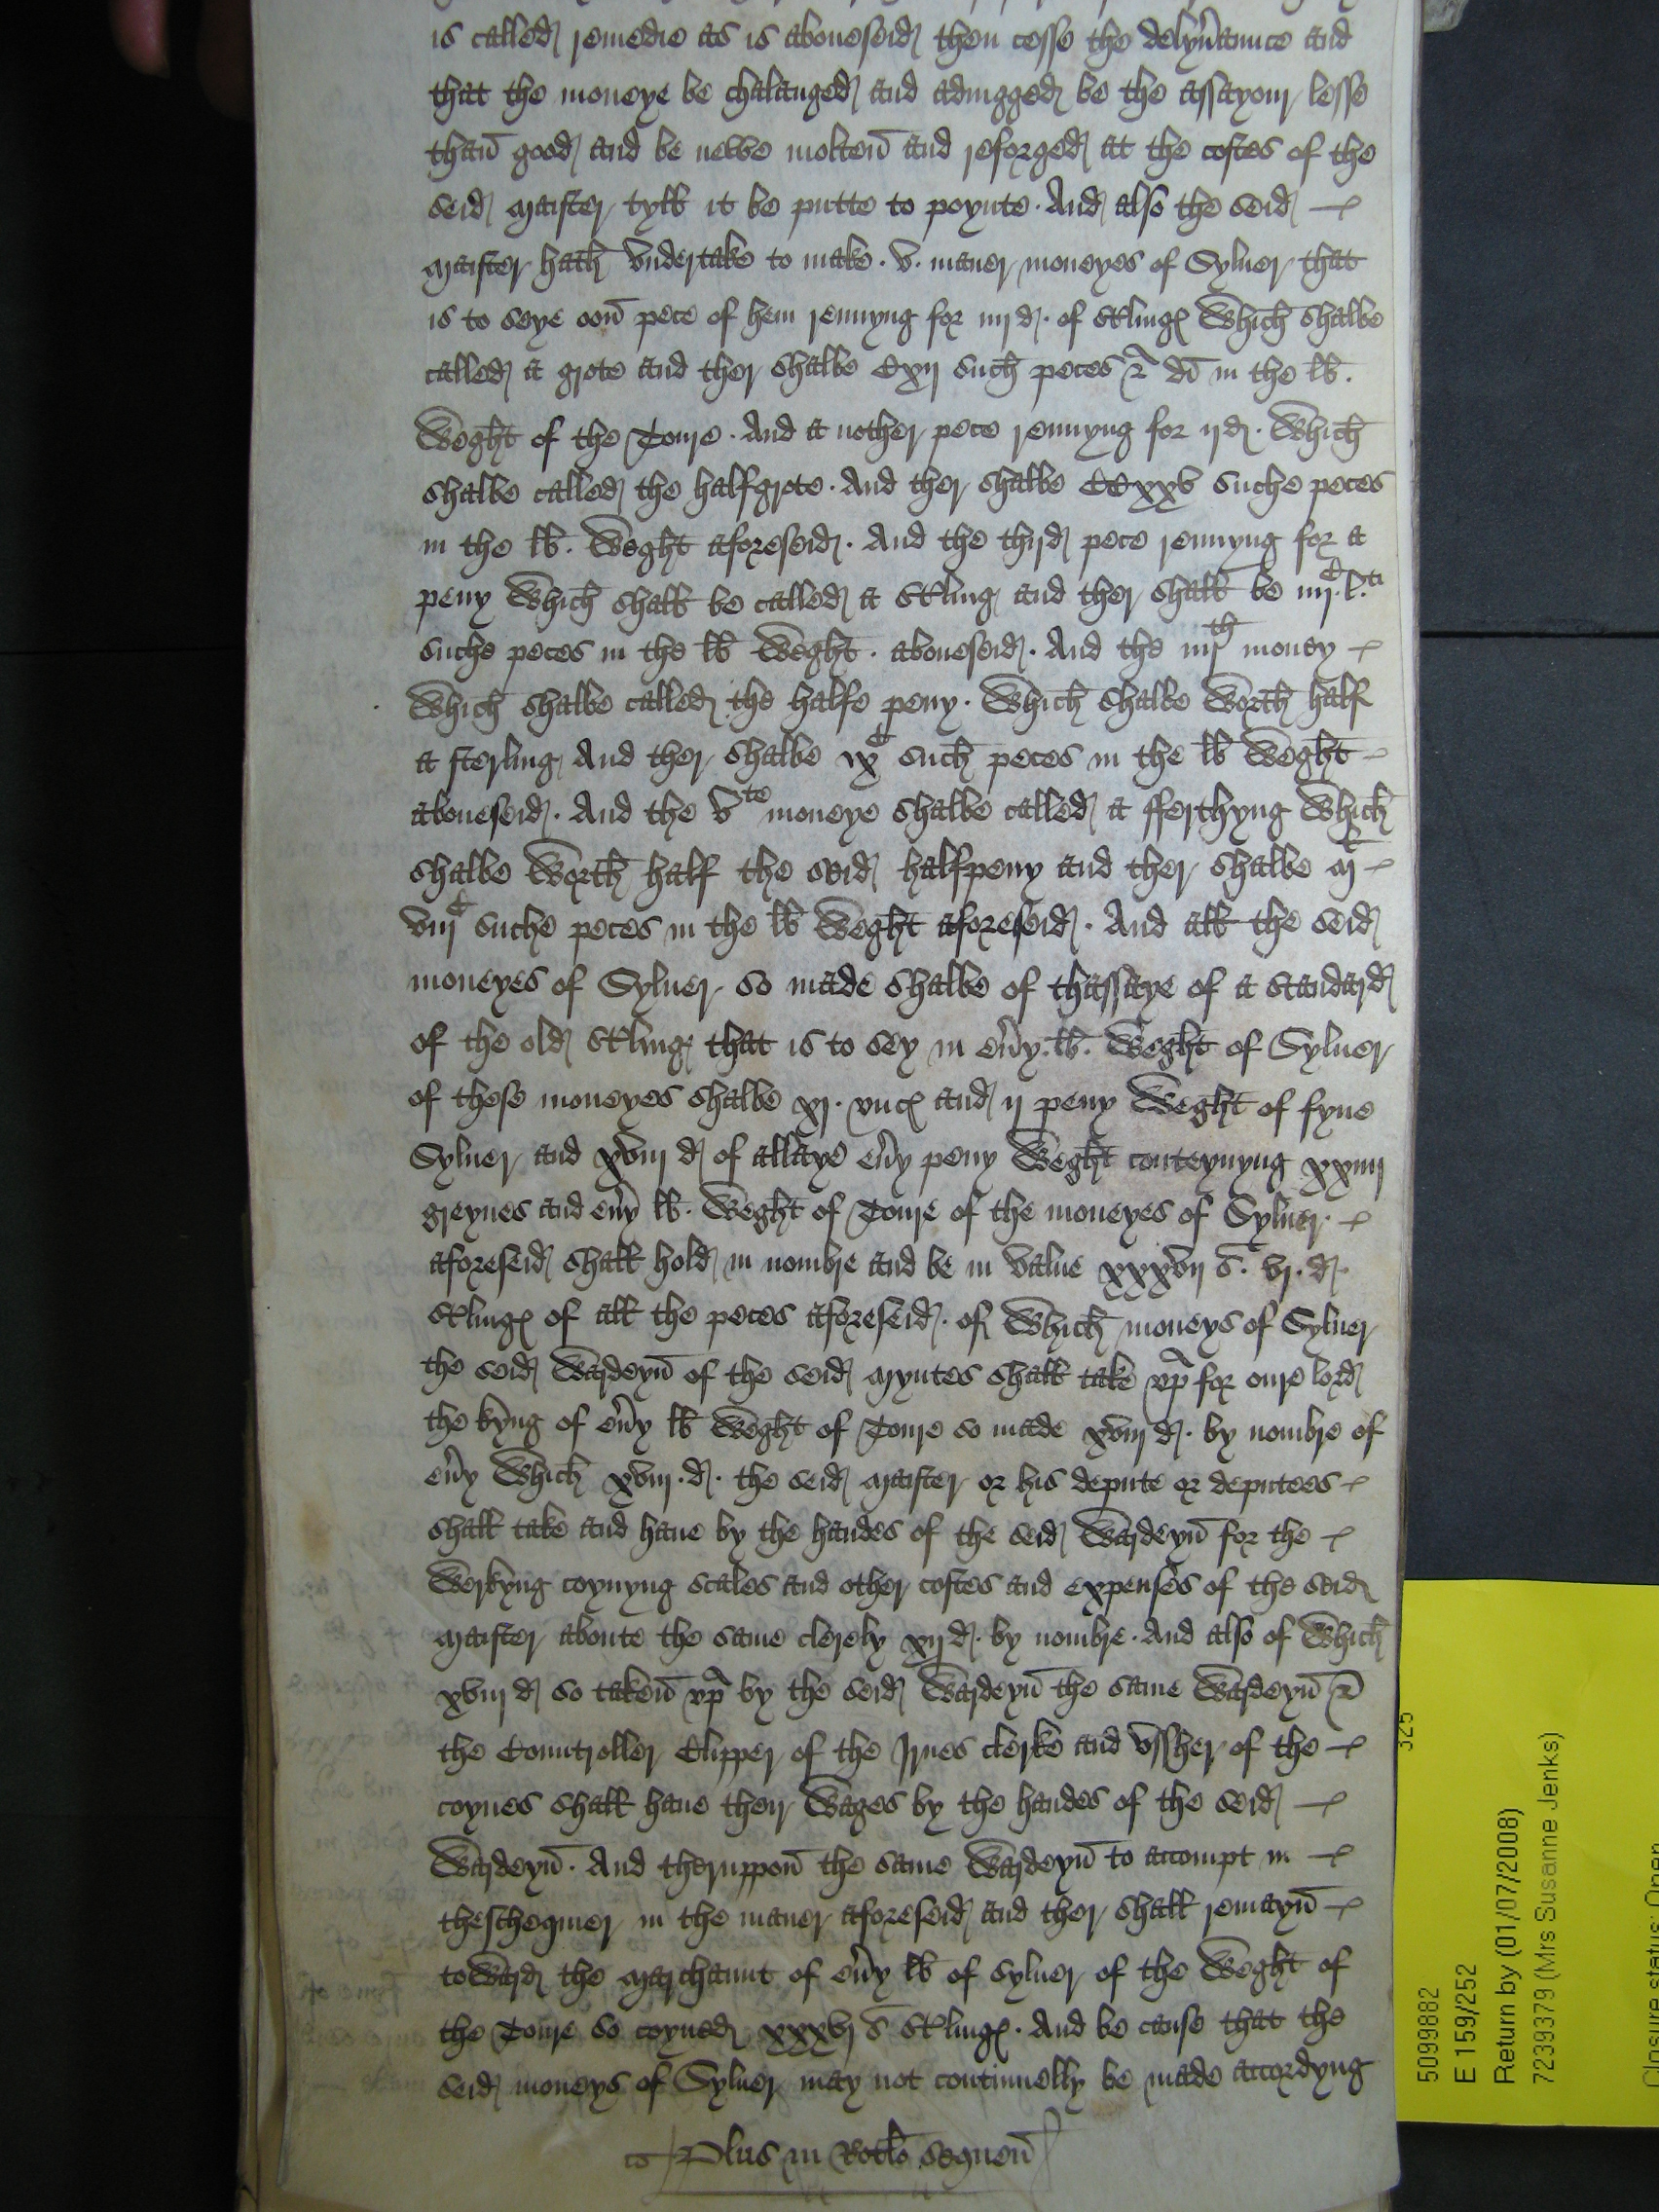 is called remedie as is aboueseid then cesse the delyu'aunce and
that the moneye be chalanged and adiugged be the assayour lesse
than good and be newe molten and reforged at the costes of the
seid maister tyll it be putte to poynte. And also the seid
maister hath vndertake to make .v. maner moneyes of Syluer that
is to seye oon pece of hem rennyng for iiij d. of st'lings Which shalbe
called a grote and ther shalbe Cxij such peces & di in the lb.
Weght of the Toure. And a nother pece rennyng for ij d. Which
shalbe called the halfgrote. And ther shalbe CCxxv suche peces
in the lb. Weght aforeseid. And the thyrd pece rennyng for a
peny Which shall be called a st'ling and ther shall be iiij C l.ti
suche peces in the lb Weght. aboueseid. And the iiij th money
Which shalbe called the halfe peny. Which shalbe Worth half
a sterling And ther shalbe ix C such peces in the lb Weght
aboueseid. And the v te moneye shalbe called a fferthyng Which
shalbe Worth half the seid halfpeny and ther shalbe Ml
viij C suche peces in the lb Weght aforeseid. And all the seid
moneyes of Syluer so made shalbe of thassaye of a standard
of the old st'ling that is to sey in eu'y .lb. Weght of Syluer
of these moneyes shalbe xj. vncs and ij peny Weght of fyne
Syluer and xviij d of allaye eu'y peny Weght conteynyng xxiiij
greynes and eu'y lb. Weght of Toure of the moneyes of Syluer
aforeseid shall hold in nombre and be in value xxxvij s. vj. d.
st'lings of all the peces aforeseid. of Which moneys of Syluer
the seid Wardeyn of the seid Myntes shall take vp for oure lord
the kyng of eu'y lb Weght of Toure so made xviij d. by nombre of
eu'y Which xviij. d. the seid maister or his depute or deputees
shall take and haue by the handes of the seid Wardeyn for the
Werkyng coynyng scales and other costes and expenses of the seid
maister aboute the same clerely xij d. by nombre. And also of Which
xviij d so taken vp by the seid Wardeyn the same Wardeyn &
the Countroller Clipper of the Irnes clerke and vssher of the
coynes shall haue their Wages by the handes of the seid
Wardeyn. And theruppon the same Wardeyn to accompt in
theschequier in the maner aforeseid and ther shall remayn
toWard the marchaunt of eu'y lb of syluer of the Weght of
the Toure so coyned xxxvj s st'lings. And be cause that the
seid moneys of Syluer may not continuelly be made accordyng
Plus in Rotlo sequen
325
5099882
E 159/252
Return by (01/07/2008)
7239379 (Mrs Susanne Jenks)
Closure status: Open